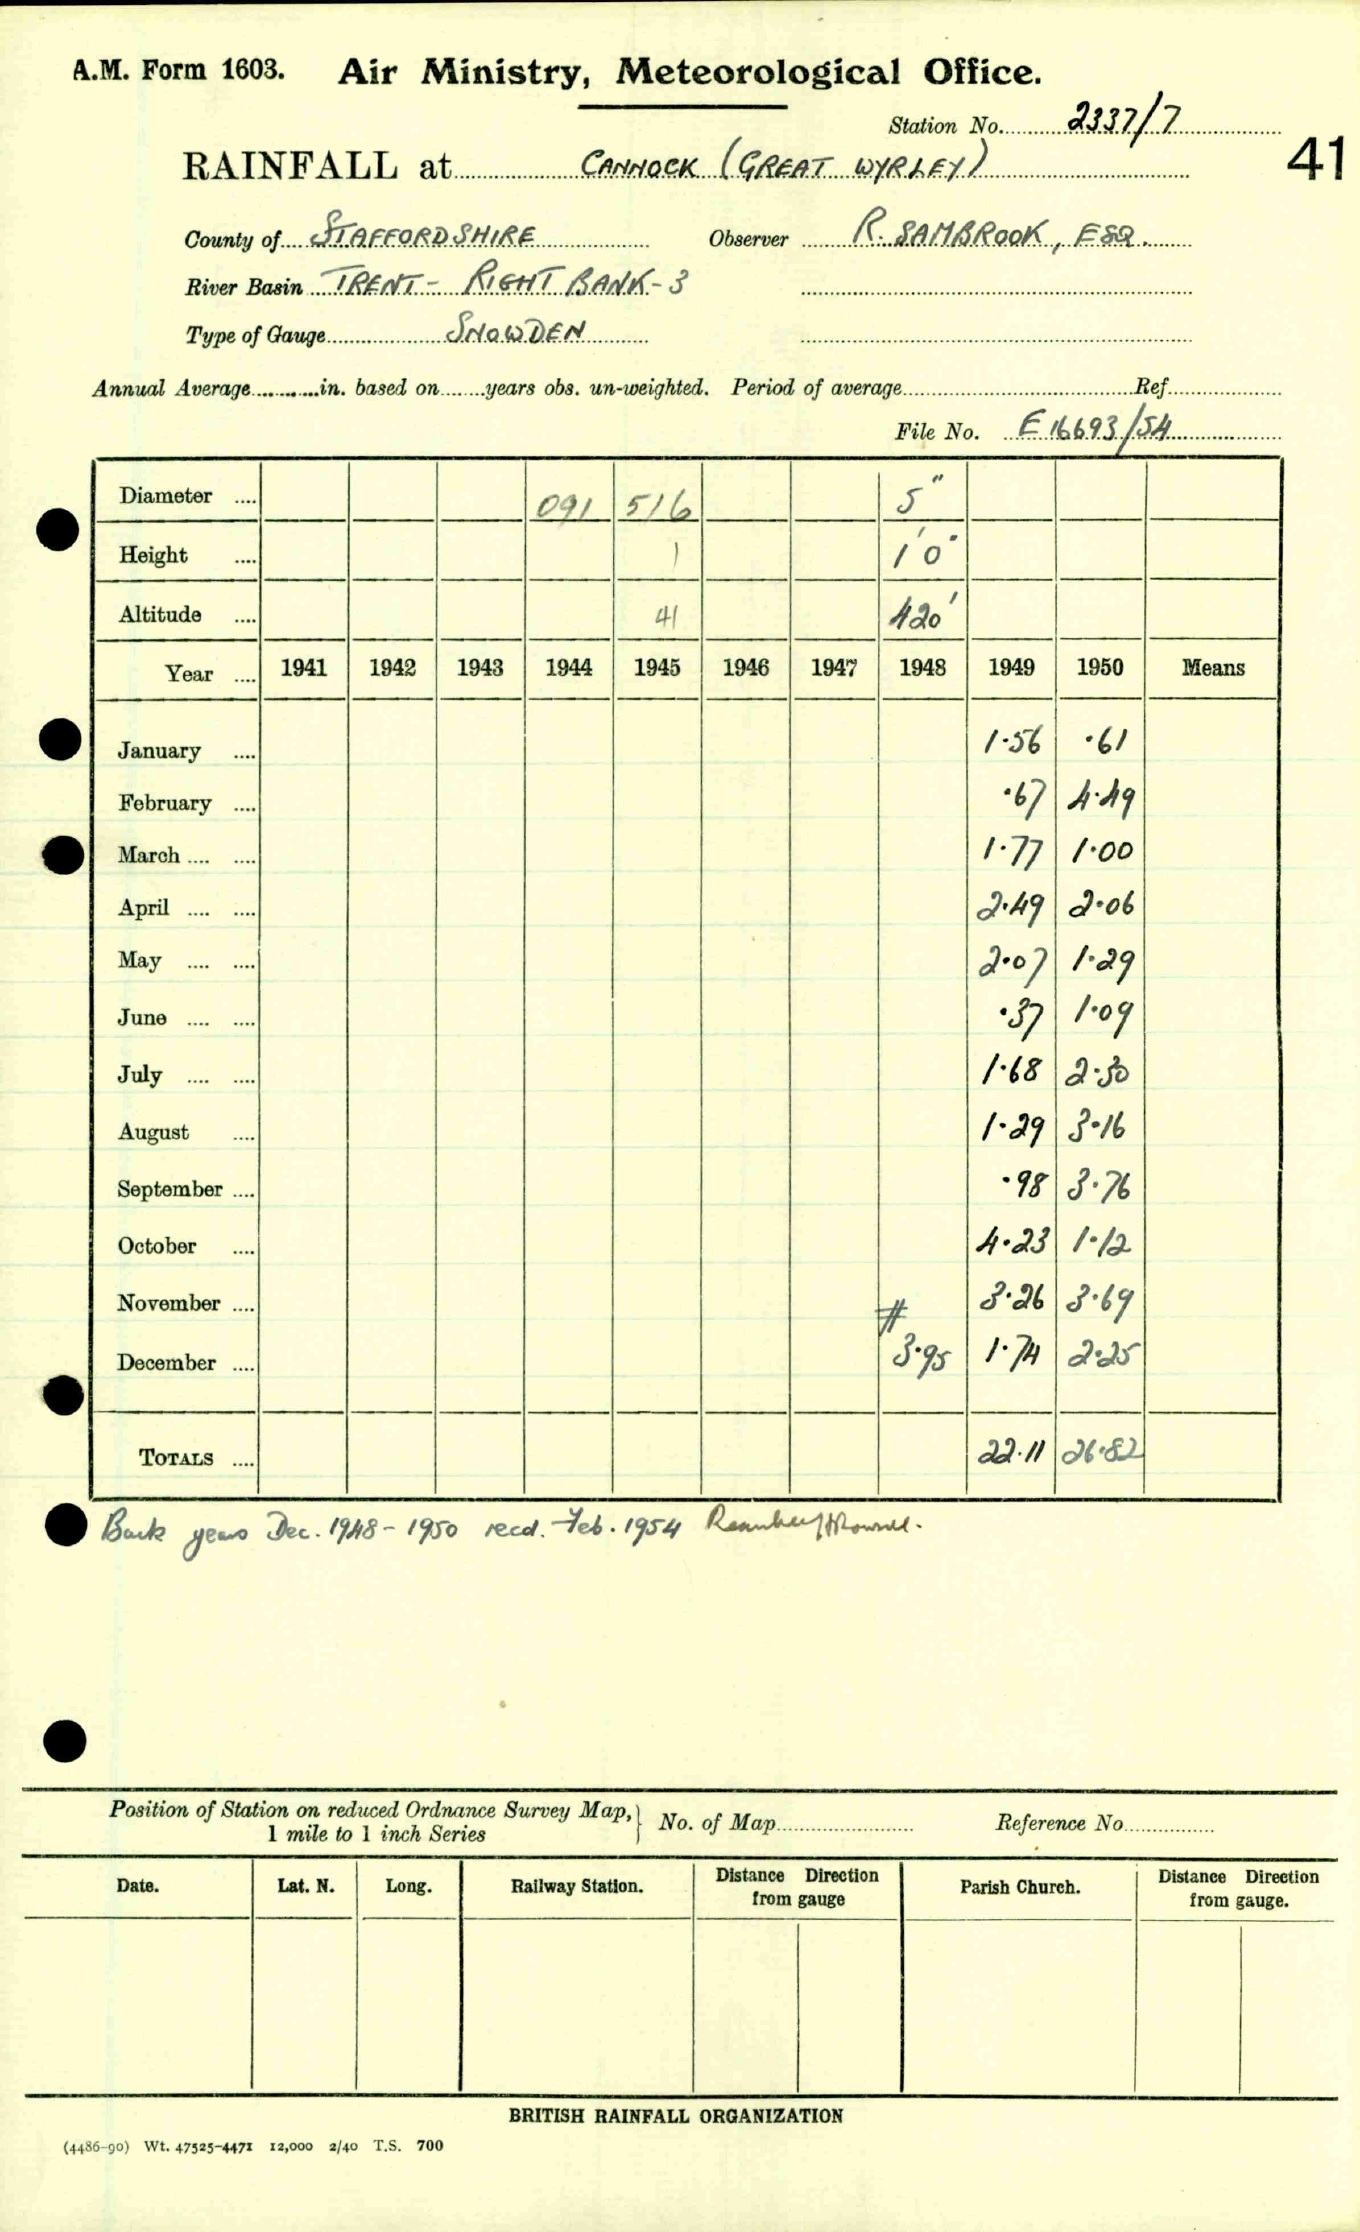 A.M. Form 1603. Air Ministry, Meteorological Office.
Station No. 2337/7
41
RAINFALL at CANNOCK (GREAT WYRLEY)
County of STAFFORDSHIRE Observer R. SAMBROOK, ESQ.
River Basin TRENT - RIGHT BANK - 3
Type of Gauge SNOWDEN
Annual Average in. based on years obs. un-weighted. Period of average Ref
File No. E 16693/54
Diameter 091 516 5"
Height 1 1'0"
Altitude 41 420'
Year 1941 1942 1943 1944 1945 1946 1947 1948 1949 1950 Means
January 1.56 .61
February .67 4.49
March 1.77 1.00
April 2.49 2.06
May 2.07 1.29
June .37 1.09
July 1.68 2.30
August 1.29 3.16
September .98 3.76
October 4.23 1.12
November # 3.26 3.69
December 3.95 1.74 2.25
TOTALS 22.11 26.82
Back years Dec. 1948 - 1950 recd. Feb. 1954
Position of Station on reduced Ordnance Survey Map, } No. of Map Reference No
1 mile to 1 inch Series
Date. Lat. N. Long. Railway Station. Distance Direction from gauge Parish Church. Distance Direction from gauge.
BRITISH RAINFALL ORGANIZATION
(4486-90) Wt. 47525-4471 12,000 2/40 T.S. 700